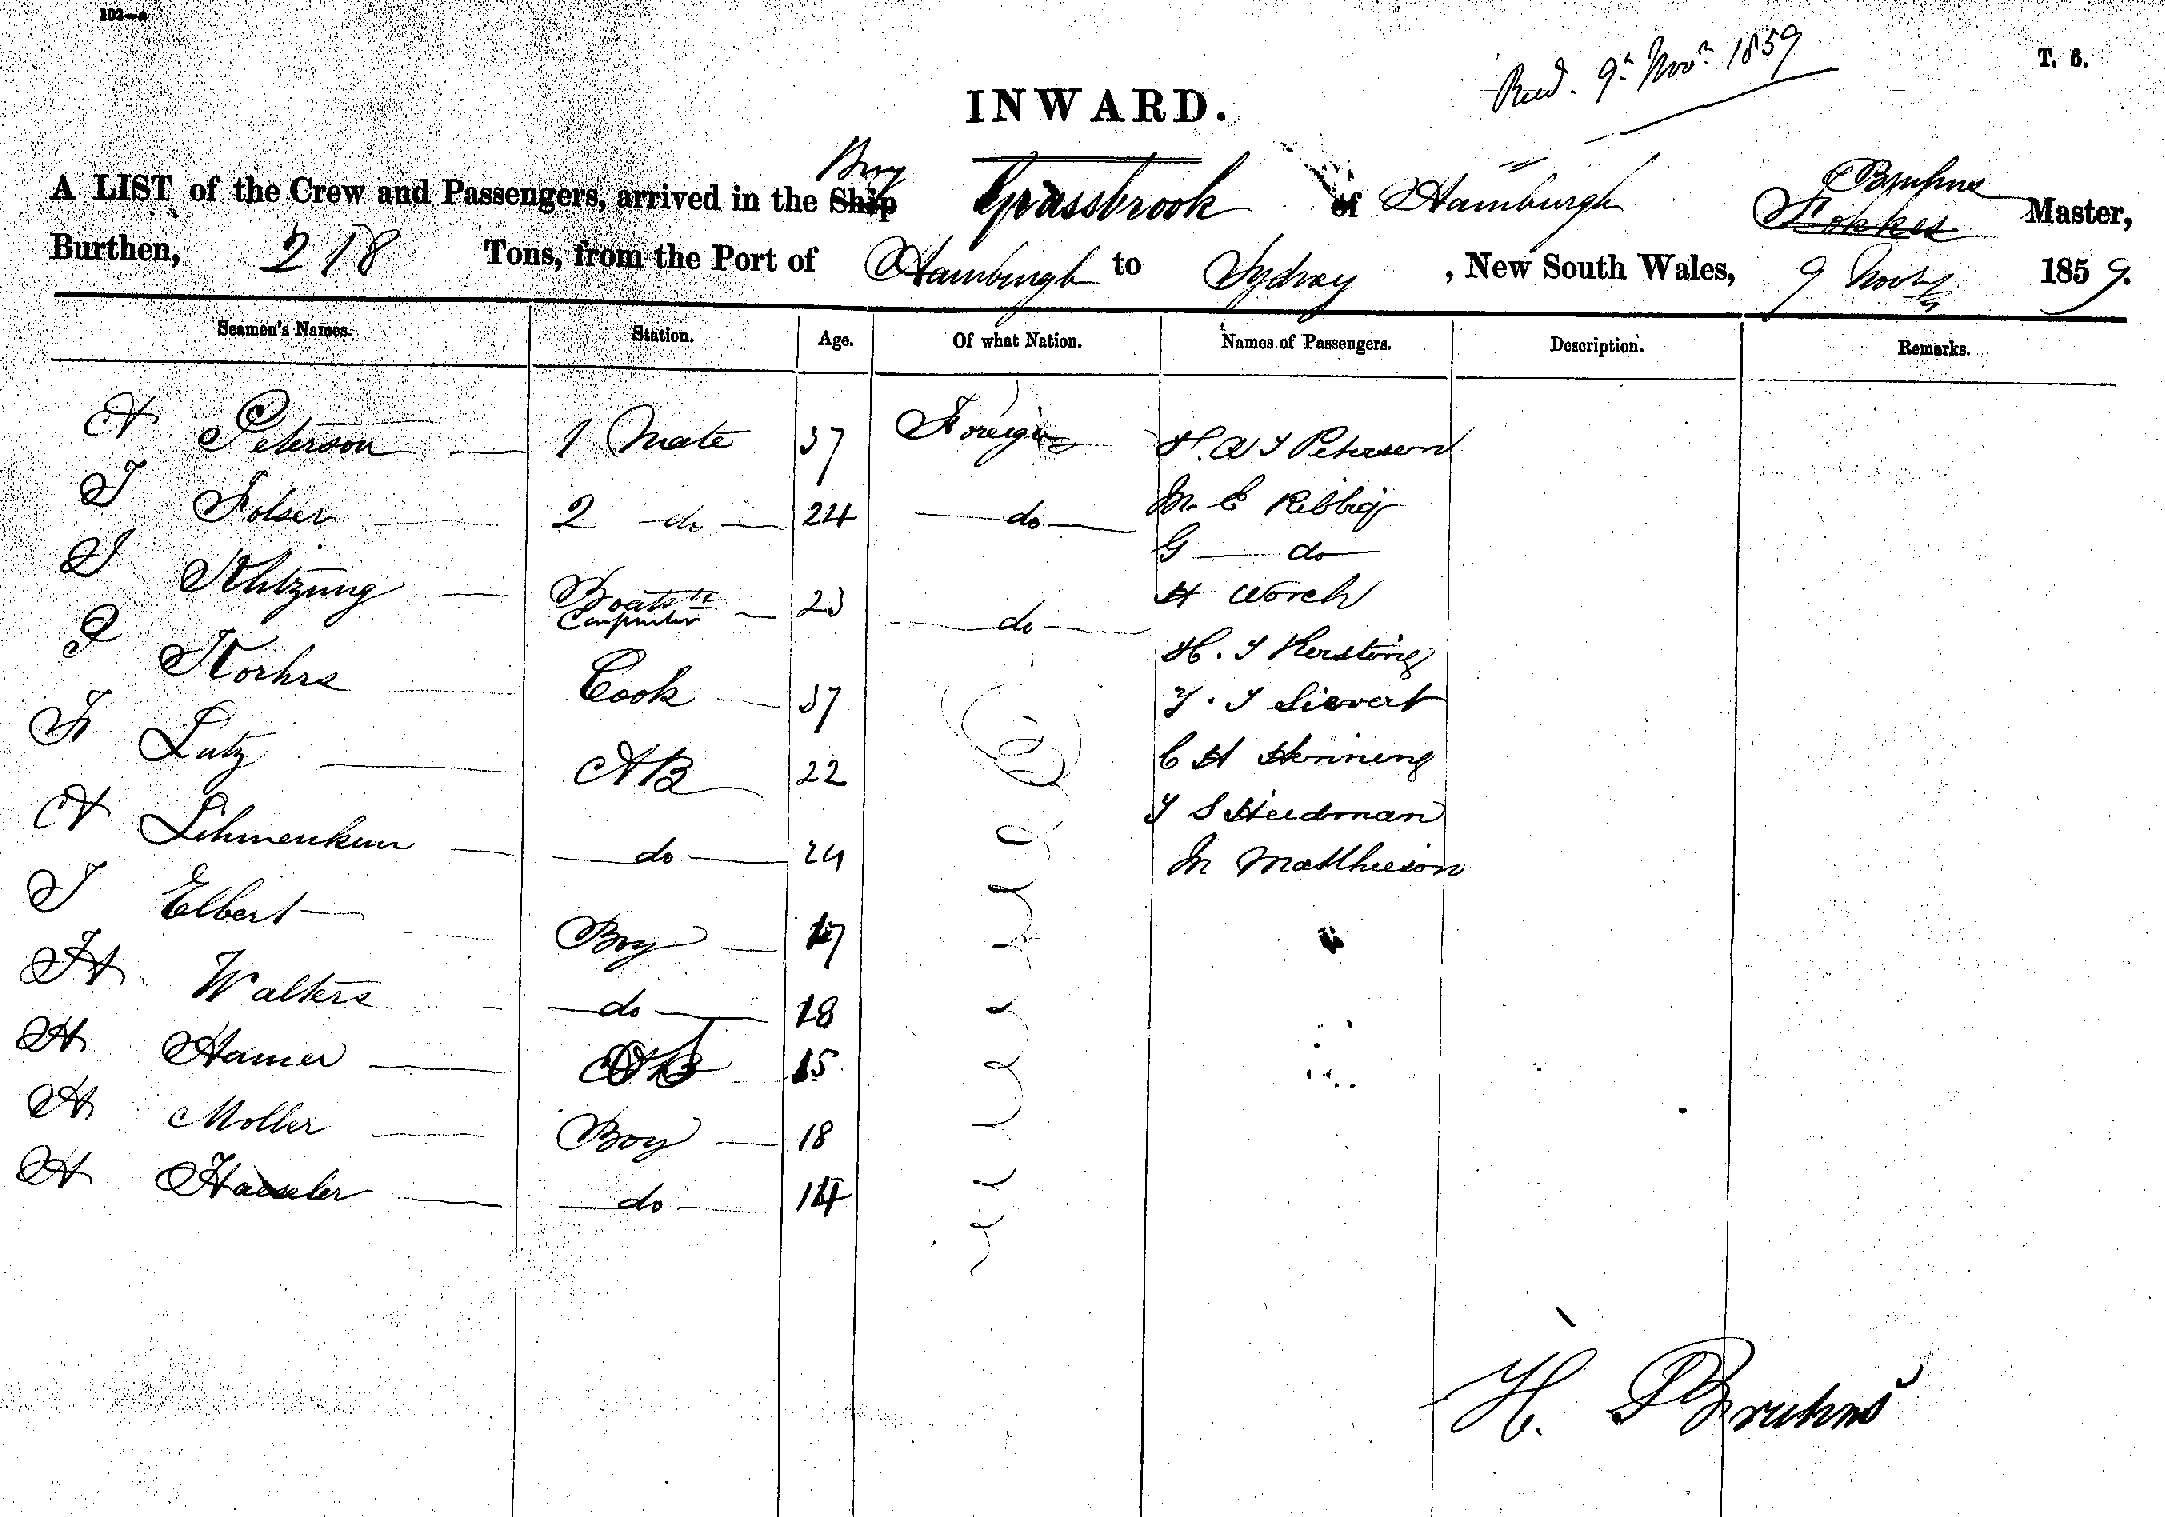 102—a
Recd. 9th Novr 1859
T. 6.
INWARD.
A LIST of the Crew and Passengers, arrived in the Ship Brig Grassbrook of Hamburgh Fokkes Bruhns Master,
Burthen, 218 Tons, from the Port of Hamburgh to Sydney, New South Wales, 9 Novr 1859.
Seamen's Names. Station. Age. Of what Nation. Names of Passengers. Description. Remarks.
A Peterson 1 Mate 37 Foreign H. A J Peterson
J Folser 2 do 24 do M. E Kibbig
G do
J Klitzing Boatsn Carpenter 23 do H Worch
J Korhrs Cook 37 H. J Kersting
J. J Sievert
Fr Lutz AB 22 C H Henning
A do 24 J S Heidman
M Matthieson
J Elbert Boy 17
H Walters do 18
H Hamer 15
H Moller Boy 18
H Hassler do 14
H. Bruhns